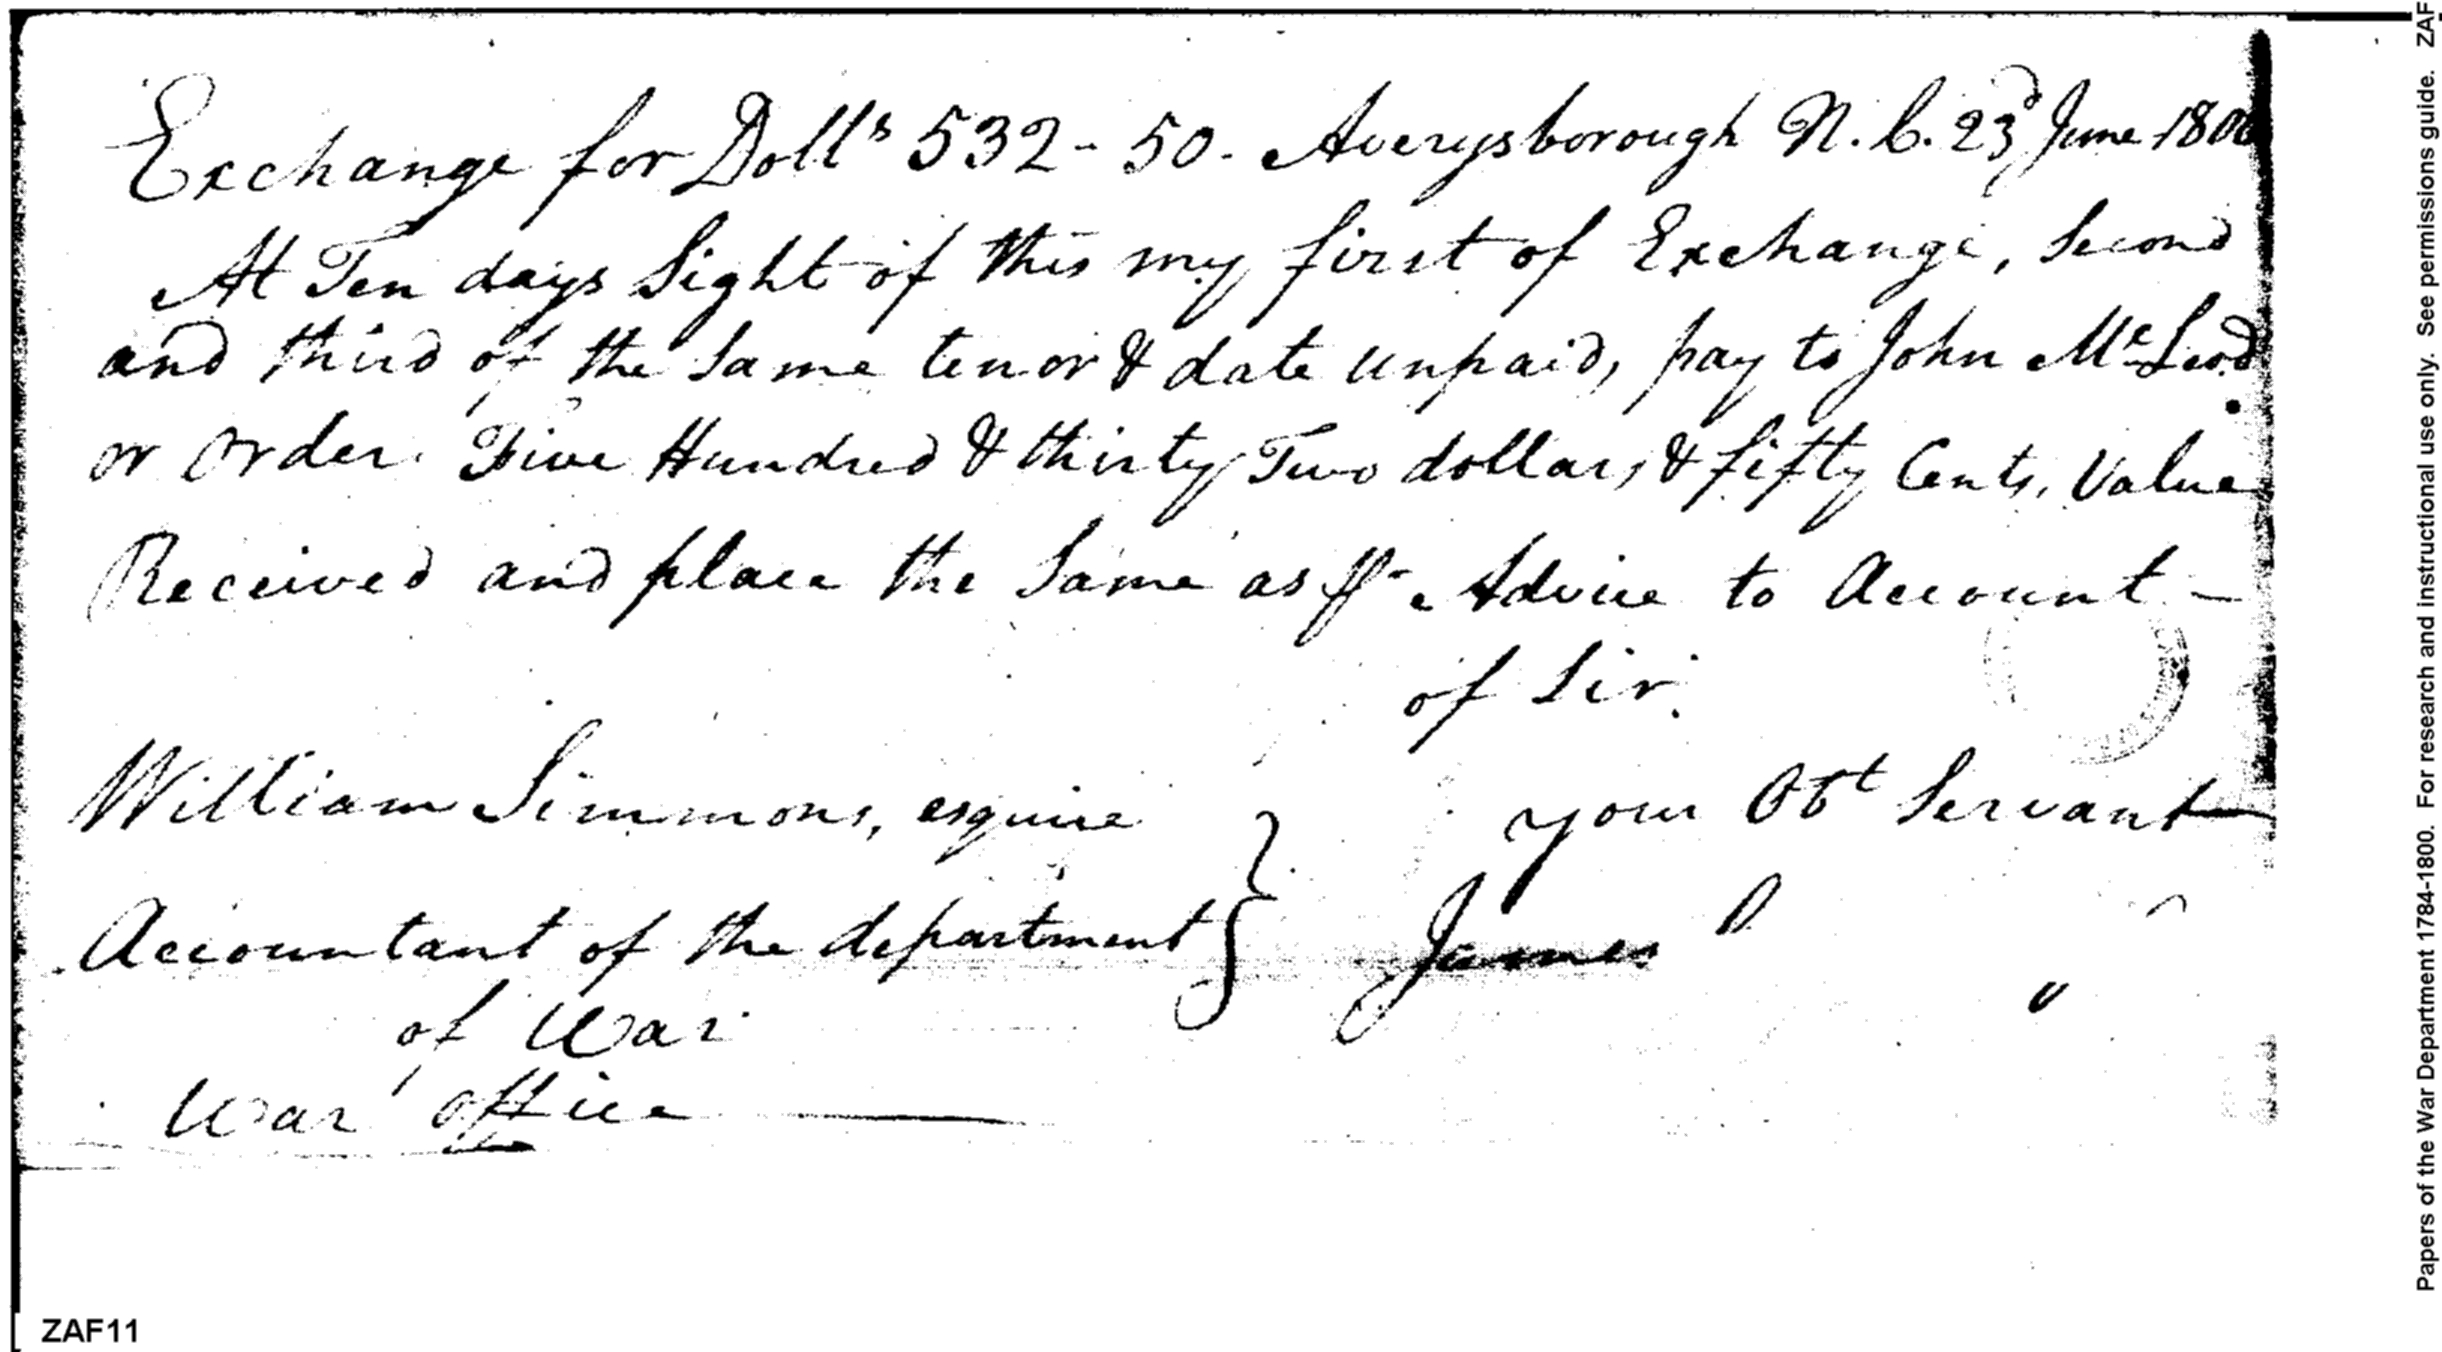 Exchange for Dolls 532-50. Averysborough N. C. 23d June 1800
At Ten days Sight of this my first of Exchange, Second
and third of the Same tenor & date unpaid, pay to John McLeod
or Order. Five Hundred & thirty Two dollars & fifty Cents, Value
Received and place the Same as pr Advice to Account -
of Sir.
your Obt Servant
William Simmons, esquire
Accountant of the department
of War
War office
James
ZAF11
Papers of the War Department 1784-1800. For research and instructional use only. See permissions guide. ZAF